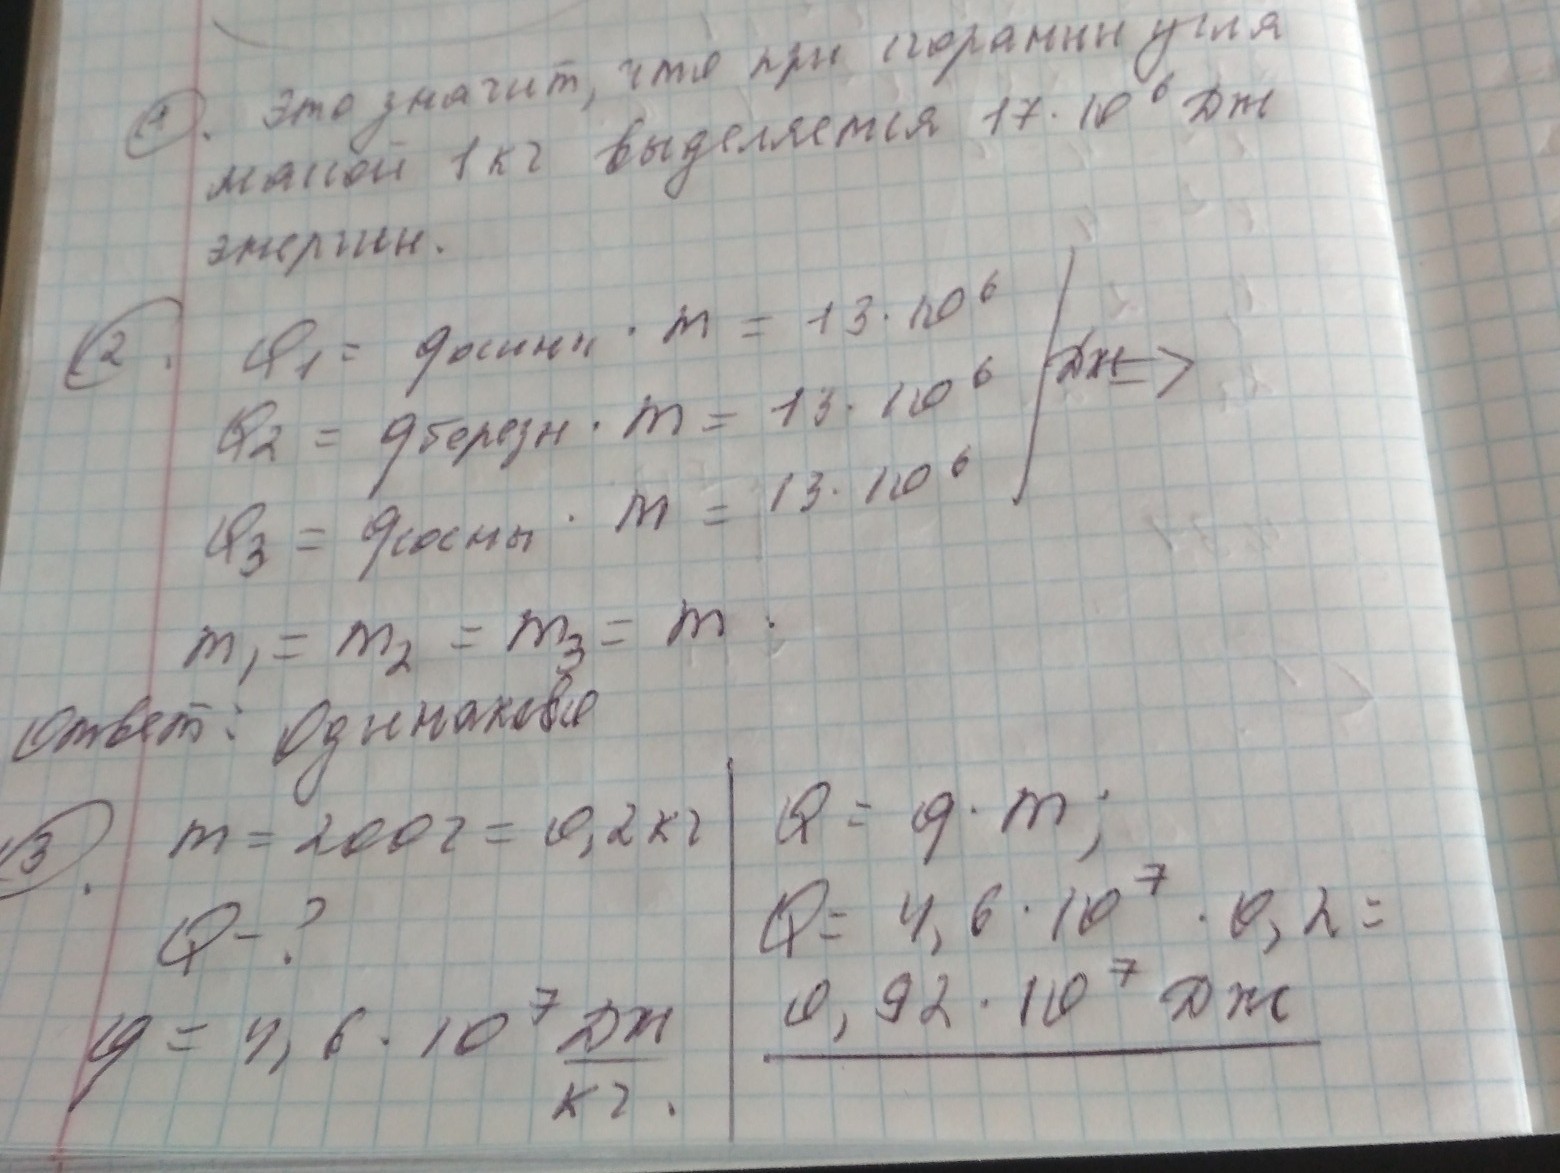 1. Это значит, что при сгорании угля
массой 1 кг выделяется 17·10⁶ Дж
энергии.
2. Q₁ = qосины · m = 13·10⁶
Q₂ = qберезы · m = 13·10⁶ Дж =>
Q₃ = qсосны · m = 13·10⁶
m₁ = m₂ = m₃ = m.
Ответ: Одинаково
3. m = 200г = 0,2кг
Q - ?
q = 4,6·10⁷ Дж/кг.
Q = q·m;
Q = 4,6·10⁷·0,2 =
0,92·10⁷ Дж